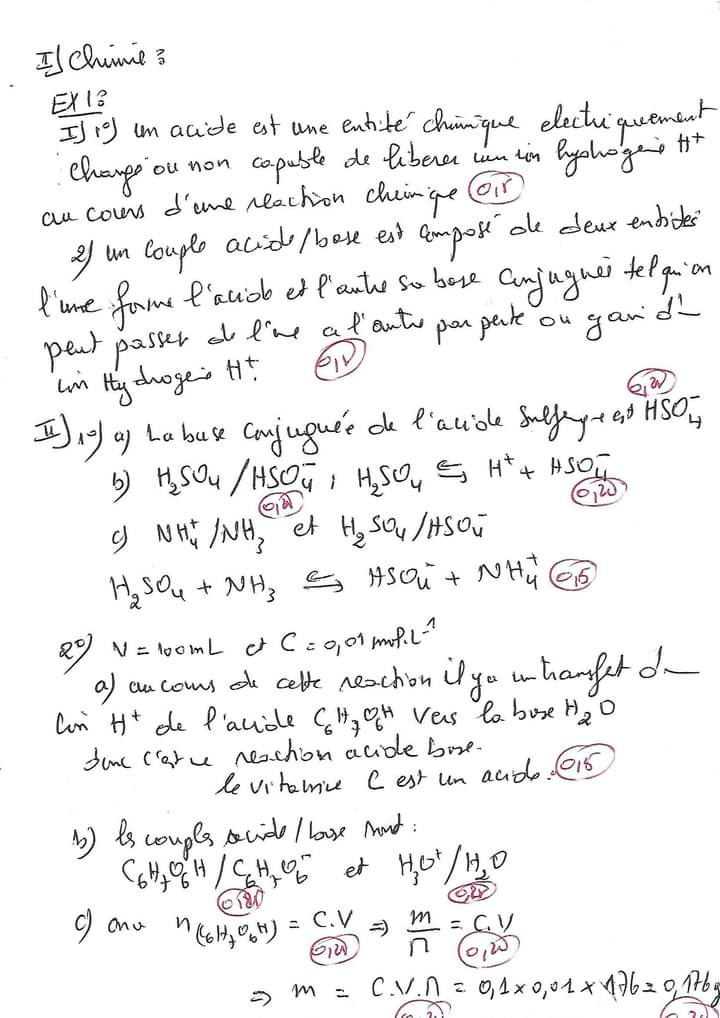 II) Chimie :
EX1 :
I) 1°) un acide est une entité chimique electriquement
chargé ou non capable de liberer un ion hydrogene H⁺
au cours d'une reaction chimique 0,5
2) un couple acide/base est composé de deux entités
l'une forme l'acide et l'autre sa base conjuguée tel qu'on
peut passer de l'une a l'autre par perte ou gain d'
ion Hydrogene H⁺.
0,25
II) 1°) a) La base conjuguée de l'acide est HSO₄⁻
b) H₂SO₄/HSO₄⁻ ; H₂SO₄ ⇆ H⁺ + HSO₄⁻
0,25 0,25
c) NH₄⁺/NH₃ et H₂SO₄/HSO₄⁻
H₂SO₄ + NH₃ ⇆ HSO₄⁻ + NH₄⁺ 0,5
2°) V = 100mL et C = 0,01 mol.L⁻¹
a) au cours de cette reaction il ya un transfet d'
ion H⁺ de l'acide C₆H₇O₆H vers la base H₂O
donc c'est reaction acide base.
le vitamine C est un acide. 0,5
b) les couples acide/base sont :
C₆H₇O₆H / C₆H₇O₆⁻ et H₃O⁺/H₂O
0,25 0,25
c) on a n(C₆H₇O₆H) = C.V ⇒ m/M = C.V
0,25 0,25
⇒ m = C.V.M = 0,1 x 0,01 x 176 = 0,176g